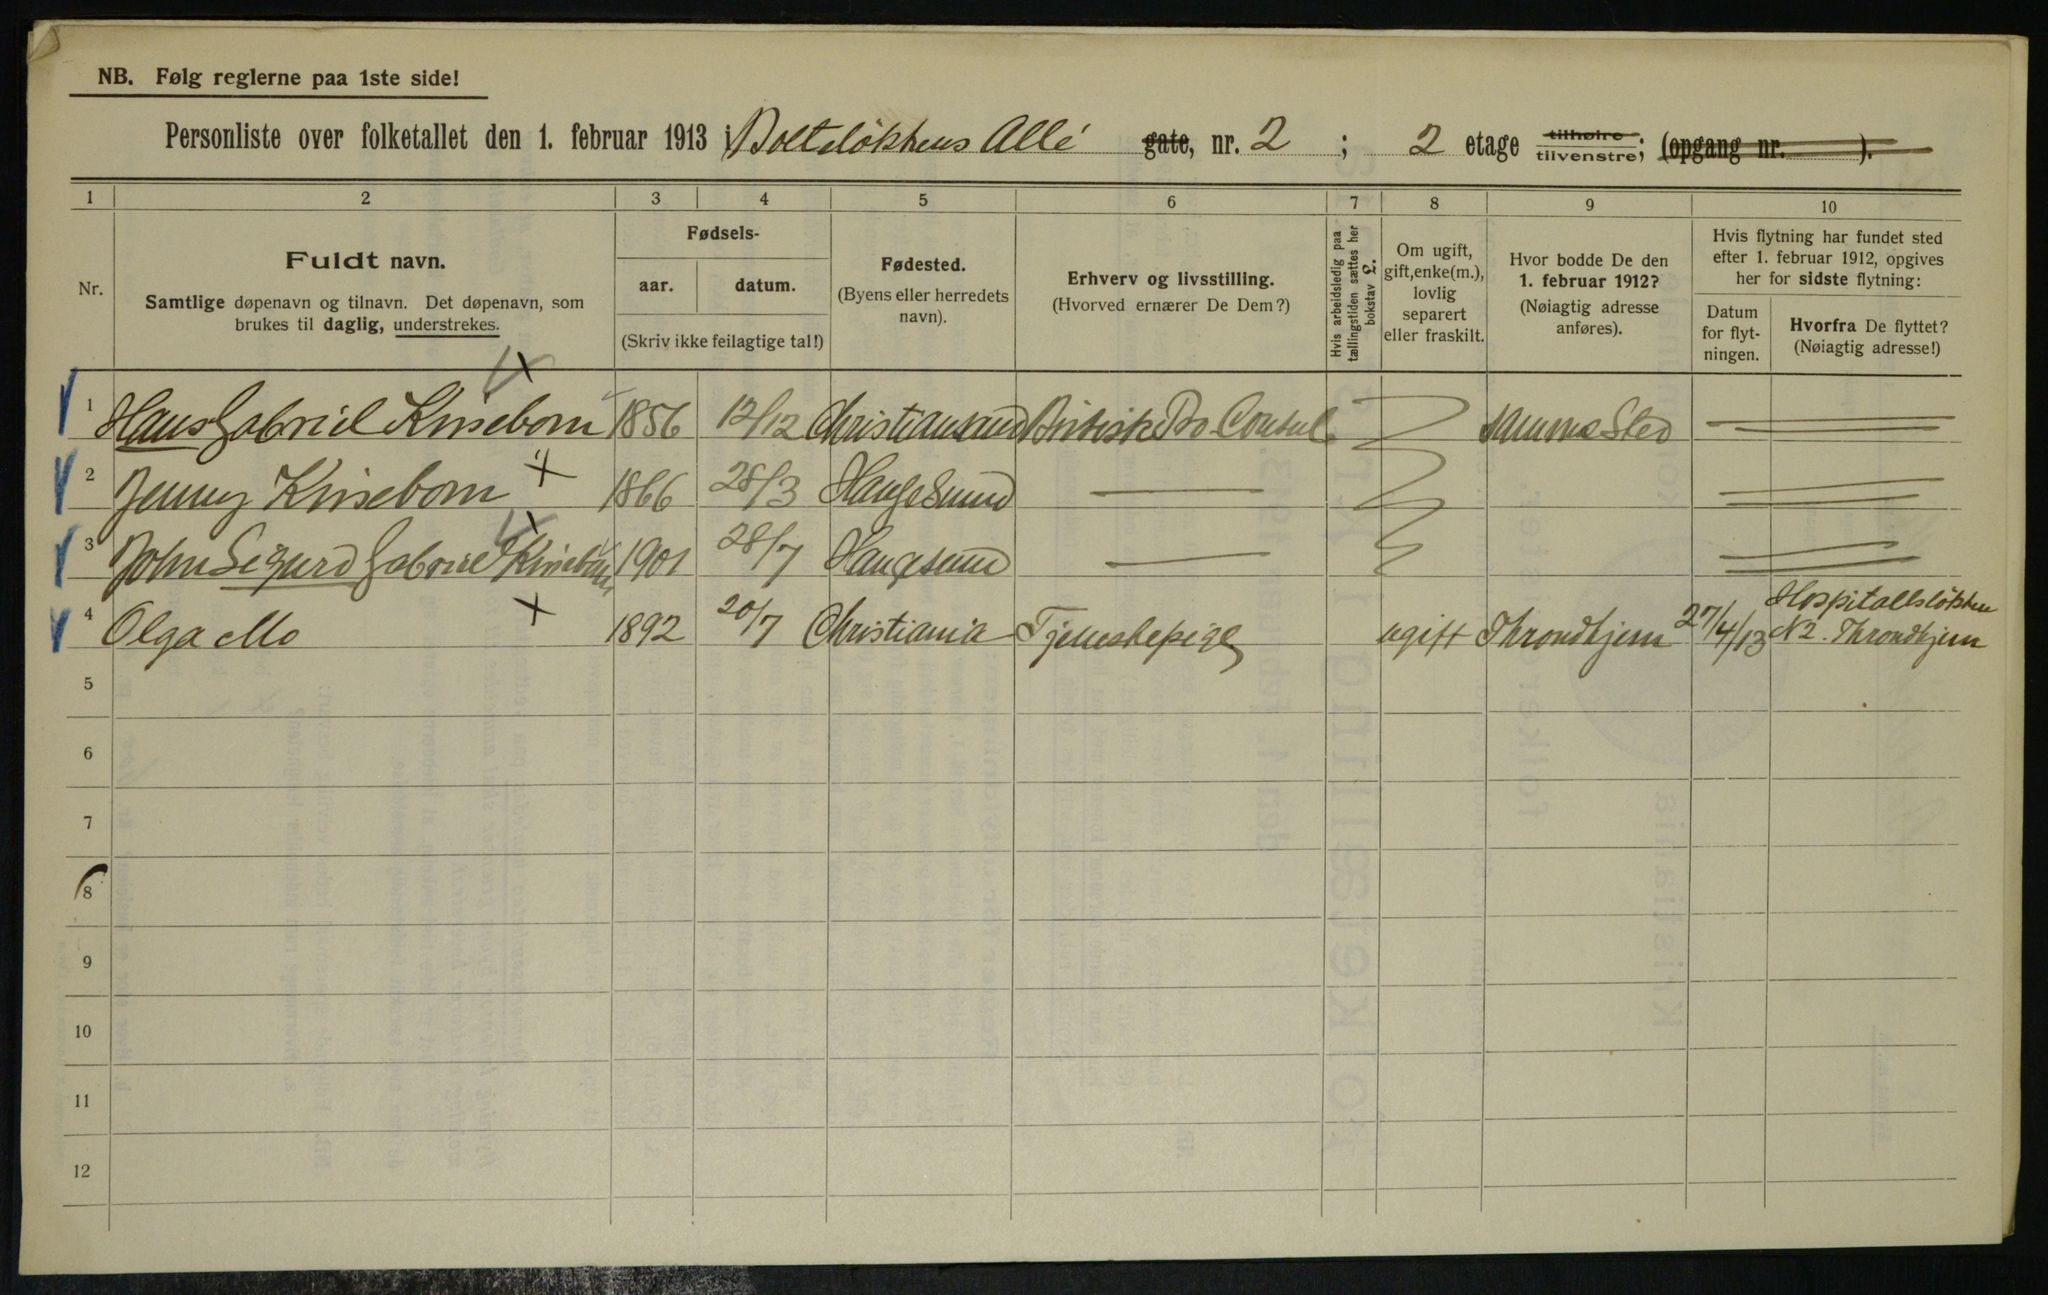 NB. Følg reglerne paa 1ste side!
Personliste over folketallet den 1. februar 1913 i Boltsløkkens Allé gate, nr. 2 ; 2 etage tilhøire tilvenstre; (opgang nr. ).
1 2 3 4 5 6 7 8 9 10
Nr.
Fuldt navn.
Samtlige døpenavn og tilnavn. Det døpenavn, som
brukes til daglig, understrekes.
Fødsels-
aar. datum.
(Skriv ikke feilagtige tal!)
Fødested.
(Byens eller herredets
navn).
Erhverv og livsstilling.
(Hvorved ernærer De Dem?)
Hvis arbeidsledig paa
tællingstiden sættes her
bokstav £.
Om ugift,
gift, enke(m.),
lovlig
separert
eller fraskilt.
Hvor bodde De den
1. februar 1912?
(Nøiagtig adresse
anføres).
Hvis flytning har fundet sted
efter 1. februar 1912, opgives
her for sidste flytning:
Datum
for flyt-
ningen.
Hvorfra De flyttet?
(Nøiagtig adresse!)
1 Hans Gabriel Kinsebom 1856 12/12 Christiansund Britisk Pro Consul samme Sted
2 Jenny Kinsebom 1866 28/3 Haugesund
3 John Sigurd Gabriel Kinsebom 1901 28/7 Haugesund
4 Olga Mo 1892 20/7 Christiania Tjenestepige ugift Throndhjem 27/4/13 Hospitalsløkken
N2. Throndhjem
5
6
7
8
9
10
11
12